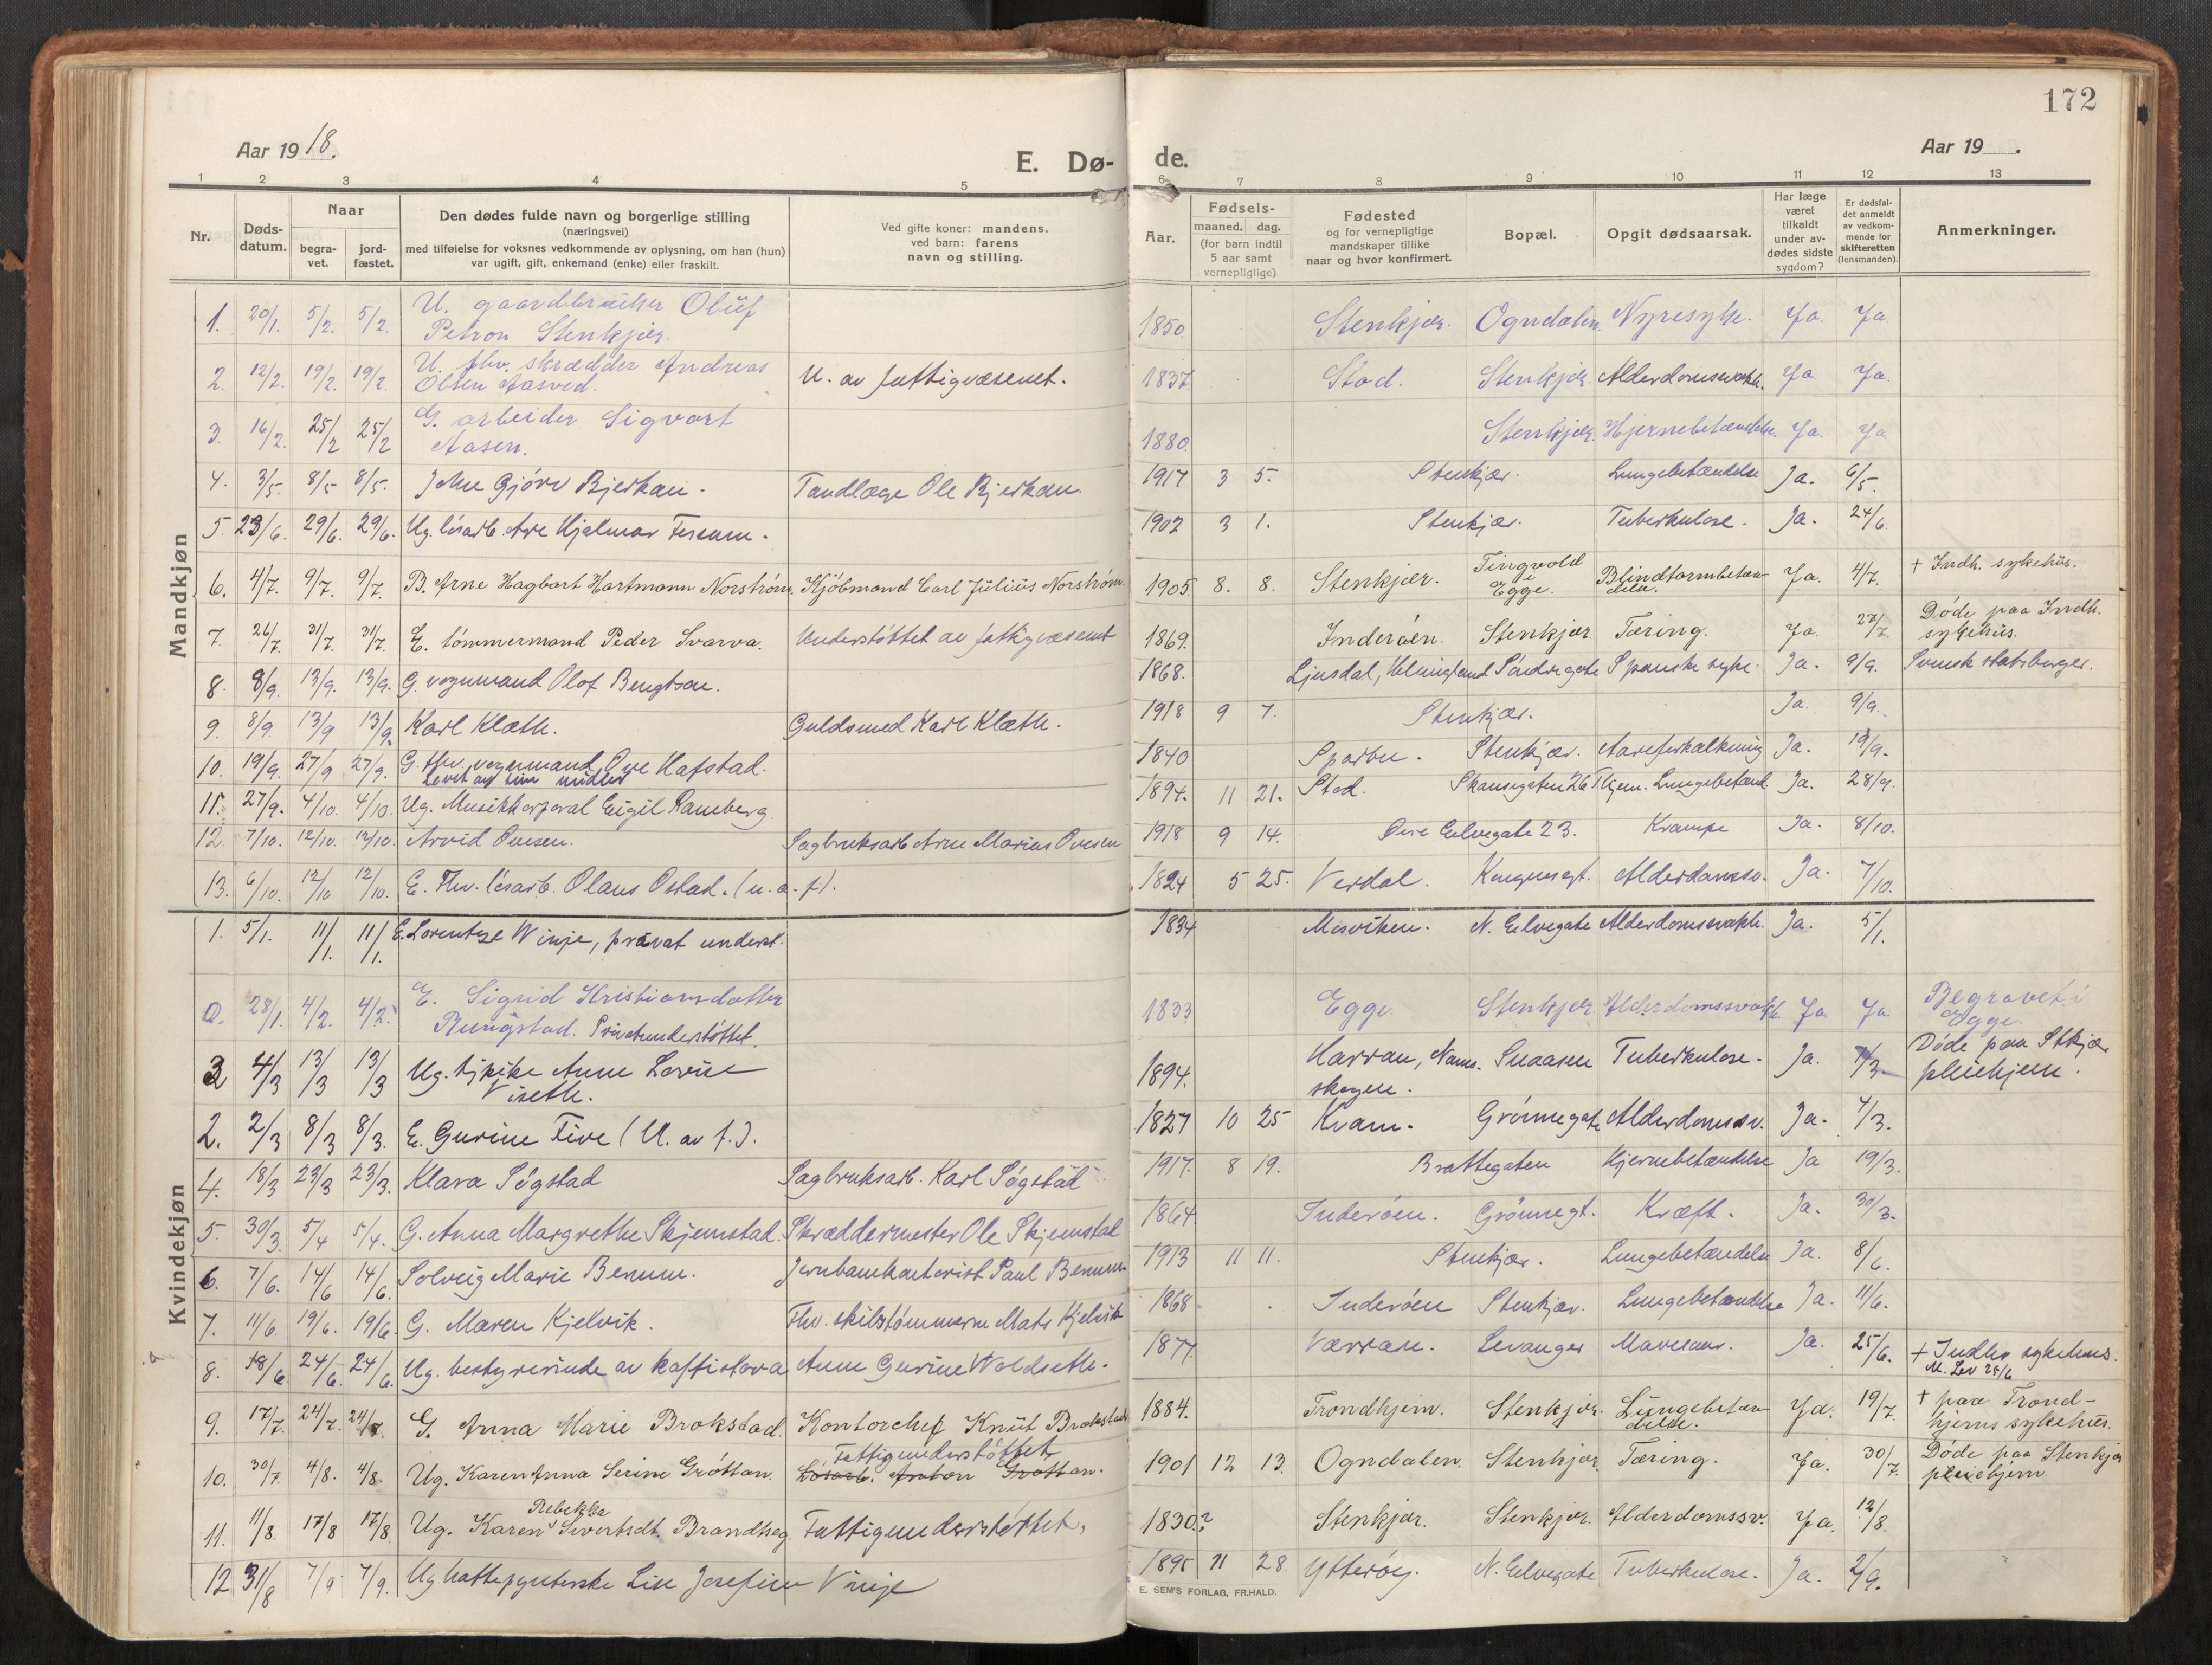 172
Aar 1918.
E. Dø-
de.
Aar 19 .
1 2 3 4 5 6 7 8 9 10 11 12 13
Nr.
Døds-
datum.
Naar
begra-
vet.
jord-
fæstet.
Den dødes fulde navn og borgerlige stilling
(næringsvei)
med tilføielse for voksnes vedkommende av oplysning, om han (hun)
var ugift, gift, enkemand (enke) eller fraskilt.
Ved gifte koner: mandens.
ved barn: farens
navn og stilling.
Aar.
Fødsels-
maaned. dag.
(for barn indtil
5 aar samt
vernepliglige)
Fødested
og for vernepligtige
mandskaper tillike
naar og hvor konfirmert.
Bopæl.
Opgit dødsaarsak.
Har læge
været
tilkaldt
under av-
dødes sidste
sygdom?
Er dødsfal-
det anmeldt
av vedkom-
mende for
skifteretten
(lensmanden).
Anmerkninger.
Mandkjøn
1. 20/1. 5/2. 5/2. U. gaardbruker Oluf
Petron Stenkjær. 1850. Stenkjær. Ogndalen. Nyresyke. Ja Ja
2. 12/2. 19/2. 19/2. U. fhv. skrædder Andreas
Olsen Aasved. U. av fattigvæsenet. 1837. Stod. Stenkjær. Alderdomssvakh. Ja Ja
3. 16/2. 25/2 25/2 G. arbeider Sigvart
Aasen. 1880. Stenkjær. Hjernebetændelse. Ja. Ja
4. 3/5. 8/5 8/5. John Gjörv Bjerkan. Tandlæge Ole Bjerkan. 1917 3 5. Stenkjær. Lungebetændelse Ja. 6/5.
5. 23/6. 29/6. 29/6. Ug. lösarb. Are Hjalmar 1902 3 1. Stenkjær. Tuberkulose. Ja. 24/6.
6. 4/7. 9/7. 9/7. B. Arne Hagbart Hartmann Norström. Kjöbmand Carl Julius Norström. 1905. 8. 8. Stenkjær. Tingvold
i
Egge. Blindtarmbetæn-
delse. Ja. 4/7. + Indh. sykehus.
7. 26/7. 31/7. 31/7. E. tömmermand Peder Svarva. Understöttet av fattigvæsenet 1869. Inderöen. Stenkjær Tæring. Ja 27/7. Döde paa Indh.
sykehus.
8. 8/9. 13/9. 13/9. G. vognmand Olof Bengtson. 1868. Ljusdal, Helsingland Söndregate Spanske syke. Ja. 9/9. Svensk statsborger.
9. 8/9. 13/9 13/9. Karl Klæth. Guldsmed Karl Klæth. 1918 9 7. Stenkjær. Ja. 9/9.
10. 19/9. 27/9 27/9. G. fhv. vognmand Ove Hafstad.
Levet av sine midler 1840 Sparbu. Stenkjær. Aareforkalkning Ja. 19/9.
11. 27/9. 4/10. 4/10. Ug. Musikkorporal Eigil Ramberg. 1894. 11 21. Stod. Skansegaten 26 Thjem. Lungebetænd. Ja. 28/9.
12. 7/10. 12/10. 12/10. Arvid Ovesen. Sagbruksarb Arne Marius Ovesen 1918 9 14. Övre Elvegate 23. Krampe Ja. 8/10.
13. 6/10. 12/10 12/10. E. Fhv. lösarb. Olaus Östad. (u. a. f). 1824 5 25. Verdal. Kongensgt. Alderdomssv. Ja. 7/10.
Kvindekjøn
1. 5/1. 11/1. 11/1. E. Lorentze Winje, privat underst. 1834 Mosviken. N. Elvegate Alderdomssvakh. Ja. 5/1.
28/1. 4/2. 4/2. E. Sigrid Kristiansdatter
Rungstad. Privatunderstöttet. 1833 Egge. Stenkjær Alderdomssvakh. Ja Ja Begravet i
Egge.
3 4/3 13/3 13/3 Ug. tjpike Anne Lovise
Viseth. 1894. Harran, Nams-
skogen. Snaasen Tuberkulose. Ja. 7/3. Döde paa Stkjær
pleiehjem.
2. 2/3 8/3 8/3. E. Gurine Five (U. av f.). 1827 10 25 Kvam. Grönnegate Alderdomssv. Ja. 4/3.
4. 18/3 23/3 23/3. Klara Søgstad Sagbruksarb. Karl Søgstad 1917. 8 19. Brattegaten Hjernebetændelse Ja 19/3.
5. 30/3. 5/4 5/4. G. Anna Margrethe Skjemstad. Skræddermester Ole Skjemstad 1864 Inderöen. Grönnegt. Kræft. Ja. 30/3.
6. 7/6. 14/6 14/6. Solveig Marie Benum. Jernbanekontorist Paul Benum. 1913 11 11. Stenkjær. Lungebetændelse Ja. 8/6.
7. 11/6. 19/6. 19/6. G. Maren Kjelvik. Fhv. skibstömmerm Mats Kjelvik 1868 Inderöen Stenkjær. Lungebetændelse Ja. 11/6.
8. 18/6 24/6. 24/6. Ug. bestyrerinde av kaffistova Anne Gurine Woldseth. 1877. Værran. Levanger Mavesaar. Ja. 25/6. + Indhr sykehus.
M. Lev 25/6
9. 17/7. 24/7. 24/7. G. Anna Marie Brokstad. Kontorchef Knut Brokstad 1884. Trondhjem. Stenkjær. Lungebetæn-
delse. Ja. 19/7. + paa Trond-
hjems sykehus.
10. 30/7. 4/8. 4/8. Ug. Karen Anna Serine Gröttan. Fattigunderstöttet
Lösarb. Anton Gröttan. 1901 12 13. Ogndalen. Stenkjær. Tæring. Ja. 30/7. Döde paa Stenkjær
pleiehjem
11. 11/8. 17/8 17/8 Ug. Karen Rebekka Sivertsdt. Brandtseg Fattigunderstöttet, 1830? Stenkjær. Stenkjær. Alderdomssv. Ja. 12/8.
12 31/8 7/9 7/9. Ug hattepynterske Lise Josefine Vinje 1895 11 28. Ytteröy. N. Elvegate Tuberkulose. Ja. 2/9.
E. SEM'S FORLAG, FR.HALD.